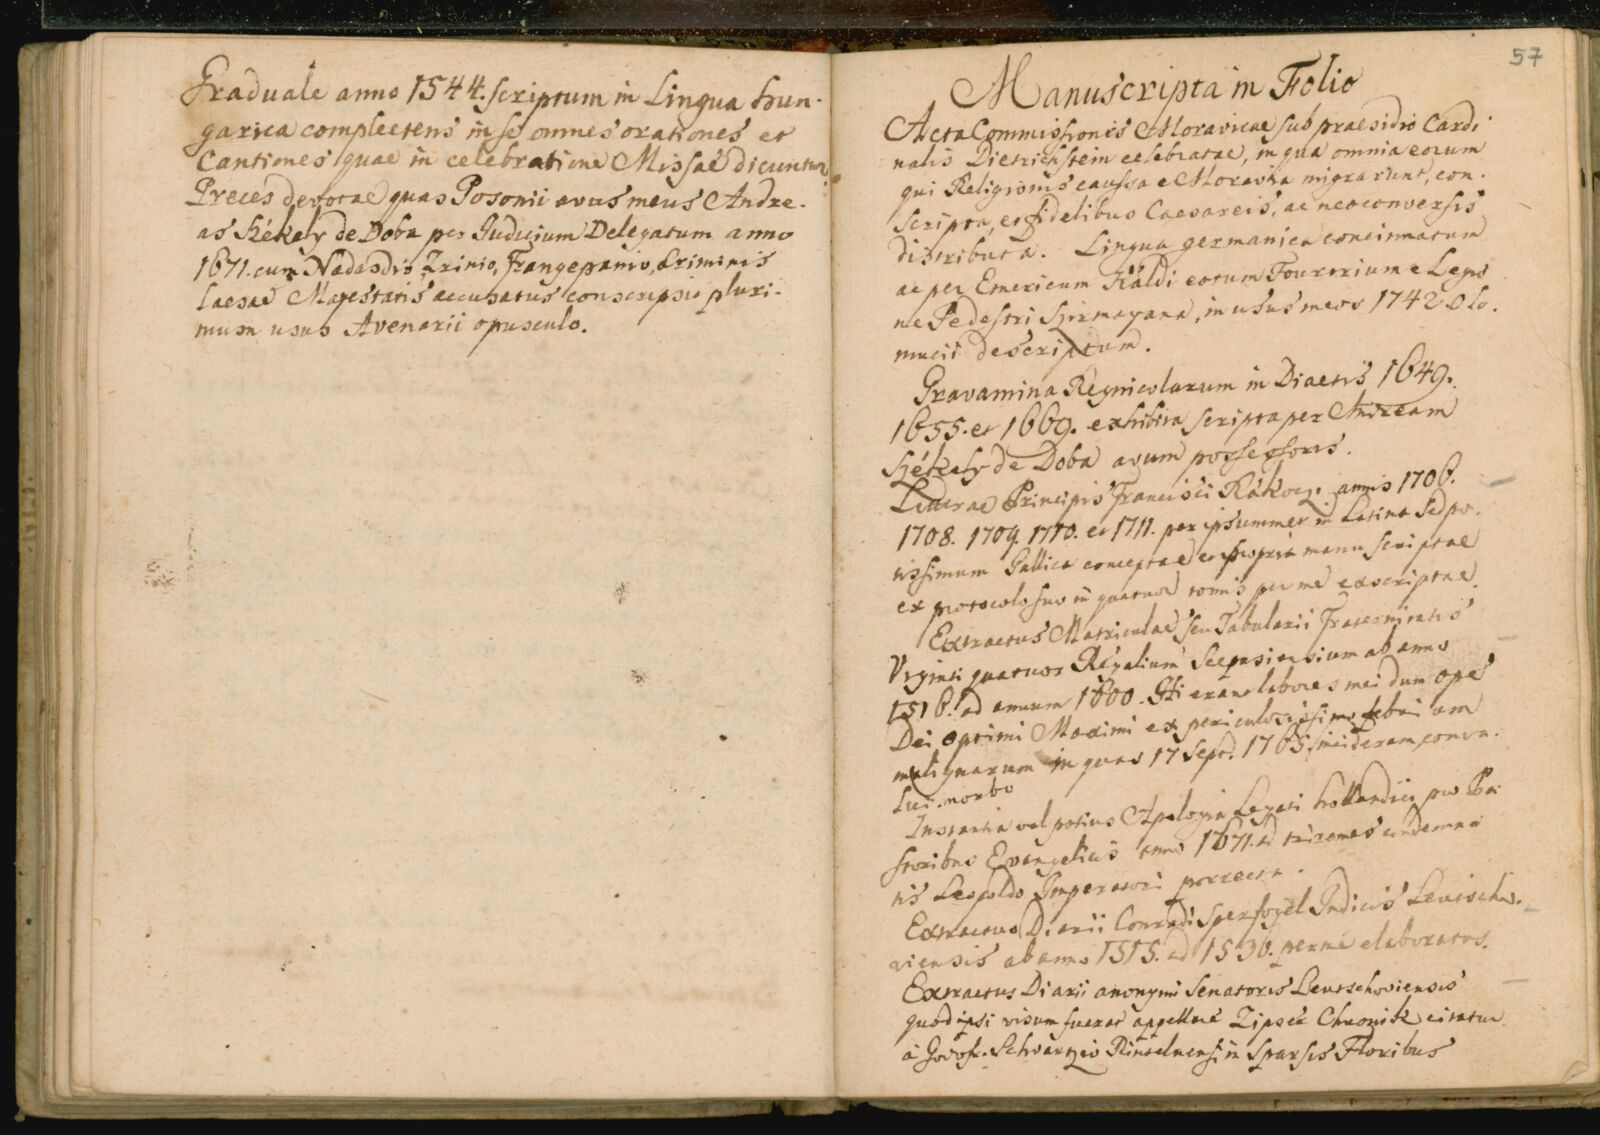 Graduale anno 1544. scriptum in Lingua hun-
garica complectens in se omnes orationes et
Cantiones quae in celebratione Missae dicuntur
Preces devotae quas Posonii avus meus Andre-
as Székely de Doba per Judicium Delegatum anno
1671. cum Nadasdio, Zrinio, Frangepanio, Criminis
laesae Majestatis accusatus conscripsit pluri-
mum usus Avenarii opusculo.
57
Manuscripta in Folio
Acta Commissionis Moravicae sub praesidio Cardi
nalis Dietrichstein celebratae, in qua omnia eorum
qui Religionis caussa e Moravia migrarunt, con-
scripta, et fidelibus Caesareis, ac neoconversis
distributa. Lingua germanica concinnatum
ac per Emericum Káldi eorum Fourerium e Legio
ne Pedestri Szirmayana, in usus meos 1742 Olo-
mucii descriptum.
Gravamina Regnicolarum in Diaetis 1649.
1655. et 1669. exhibita scripta per Andream
Székely de Doba avum possessoris.
Literae Principis Francisci Rákocz. annis 1706.
1708. 1709. 1710. et 1711. per ipsummet in Latina sed po-
tissimum Gallica conceptae et propria manu scriptae
ex protocolo suo in quatuor tomis per me exscriptae.
Extractus Matriculae seu Tabularii Fraternitatis
Viginti quatuor Regalium Scepusiensium ab anno
1516. ad annum 1600. Hi erant labores mei dum ope
Dei optimi Maximi ex periculosissimo febri um
malignarum in quas 17 Sept. 1765. incideram, conva-
lui. morbo
Instantia vel potius Apologia Legati hollandici pro Pa
storibus Evangelicis anno 1671. ad triremes condemna
tis Leopoldo Imperatori porrecta.
Extractus Diarii Conradi Sperfogel Judicis Leutscho-
viensis ab anno 1515. ad 1536. per me elaboratus.
Extractus Diarii anonymi Senatoris Leutschoviensis
quod ipsi visum fuerat appellare Zipser Chronik citatur
à Godofr. Schvartzio Rintelnensi in Sparsis Floribus